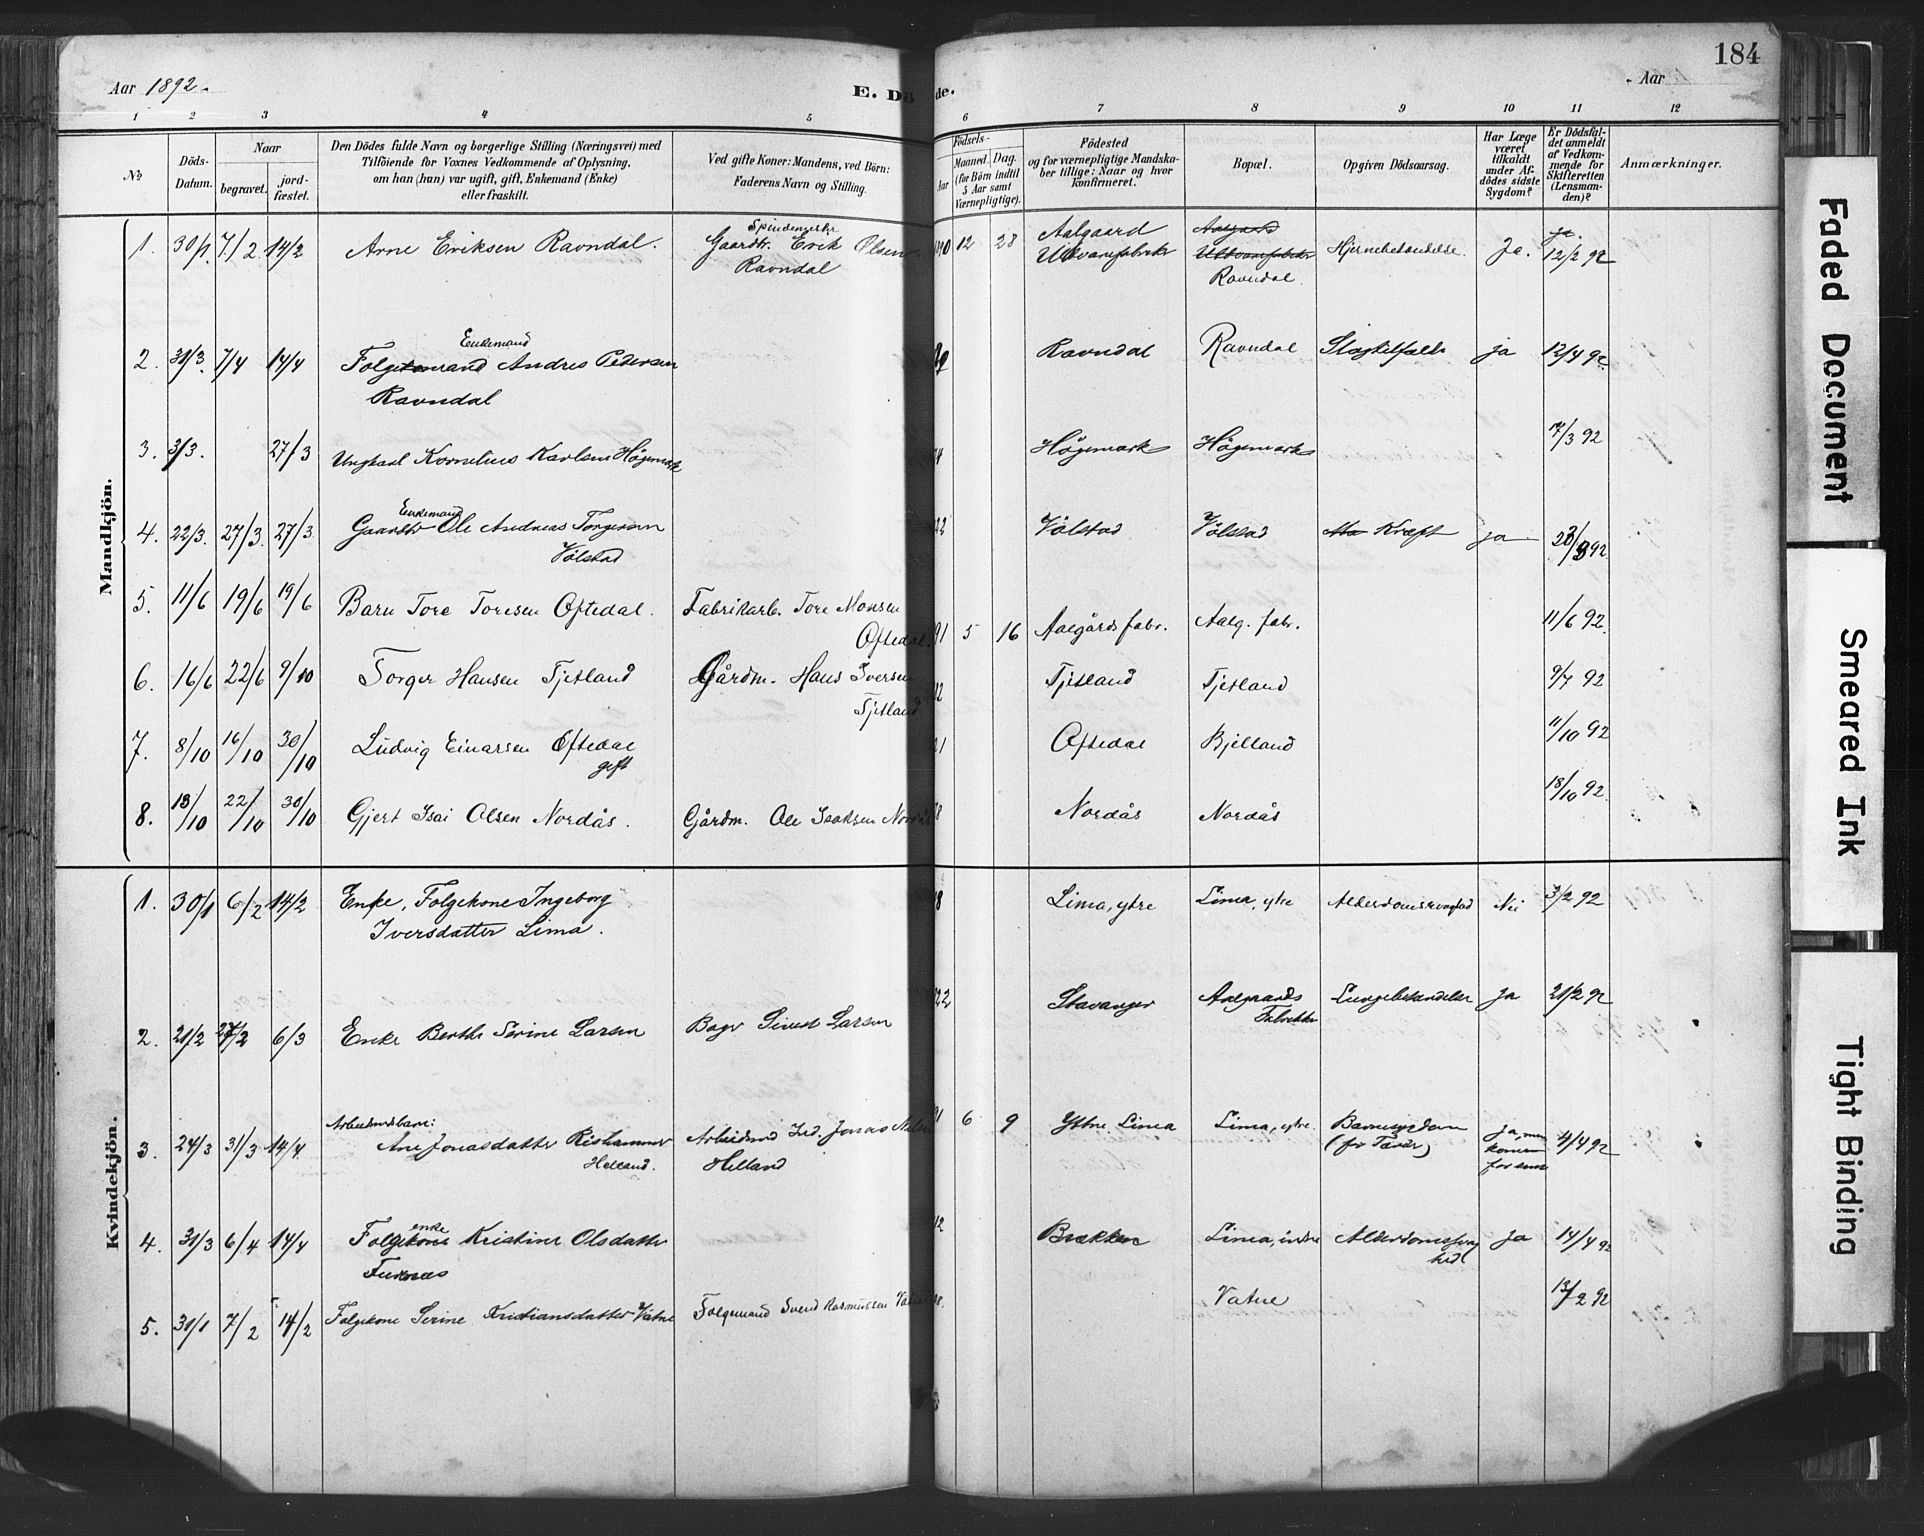 184
Aar 1892.
E. Dö de.
Aar
1 2 3 4 5 6 7 8 9 10 11 12
No
Döds-Datum.
Naar
begravet.
jord-fæstet.
Den Dödes fulde Navn og borgerlige Stilling (Næringsvei) med
Tilföiende for Voxnes Vedkommende af Oplysning,
om han (hun) var ugift, gift, Enkemand (Enke)
eller fraskilt.
Ved gifte Koner: Mandens, ved Börn:
Faderens Navn og Stilling.
Födsels-
Aar
Maaned. Dag.
(for Börn indtil
5 Aar samt
Værnepligtige).
Födested
og for værnepligtige Mandska-
ber tillige: Naar og hvor
konfirmeret.
Bopæl.
Opgiven Dödsaarsag.
Har Læge
været
tilkaldt
under Af-
dödes sidste
Sygdom?
Er Dödsfal-
det anmeldt
af Vedkom-
mende for
Skifteretten
(Lensman-
den)?
Anmærkninger.
Mandkjön.
1. 30/1 7/2 14/2 Arne Eriksen Ravndal. Gaardbr. Erik Olsen Ravndal 12 28 Aalgaard Uldvarefabriker Aalgaard Uldvarefabriker Ravndal Hjernebetændelse. Ja. ja. 12/2 92
2. 31/3 7/4 14/4 Enkemand
Folgemand Andres Pedersen
Ravndal Ravndal Ravndal Slagtilfælde ja 12/4 92
3. 3/3. 27/3 Ungkarl Kornelius Karlsen Högemark Högemark Högemark 7/3 92
4. 22/3. 27/3. 27/3 Enkemand
Gaardbr Ole Andreas Torgersen
Völstad Völstad Völstad Kræft ja 23/3 92
5. 11/6 19/6 19/6 Barn Tore Toresen Oftedal. Fabrikarb. Tore Monsen
Oftedal. 91 5 16 Aalgårds fabr. Aalg. fabr. 11/6 92.
6. 16/6 22/6 9/10 Torger Hansen Tjetland Gårdm. Hans Iversen
Tjetland Tjetland Tjetland 9/7 92
7. 8/10 16/10 30/10 Ludvig Einarsen Oftedal
gift Oftedal Bjelland 11/10 92
8. 18/10 22/10 30/10 Gjert Isai Olsen Nordås. Gårdm. Ole Isaksen Nordås Nordås Nordås 18/10 92.
Kvindekjön.
1. 30/1 6/2 14/2 Enke, Folgekone Ingeborg
Iversdatter Lima. Lima, ytre Lima, ytre Alderdomssvaghed Nei 3/2 92
2. 21/2 27/2 6/3 Enke Berthe Serine Larsen Bager Sivert Larsen 22 Stavanger Aalgaards
Fabrikker Lungebetændelse Ja 21/2 92
3. 24/3 31/3 14/4 Arbeidsmdsbarn:
Ane Jonasdatter Rishammer
Helland. Arbeidsmd Jonas
Helland 91 6 9 Ytre Lima Lima, ytre Barnesygdom
ja, men
kom
for sent 4/4 92
4. 31/3 6/4 14/4 enke
Folgekone Kristine Olsdatter
Furenæs 12 Brækken Lima, indre Alderdomssvag
hed ja 14/4 92
5. 31/1 7/2 14/2 Folgekone Serine Kristiansdatter Vatne Folgemand Svend Rasmussen Vatne Vatne 13/2 92
Faded Document
Smeared Ink
Tight Binding